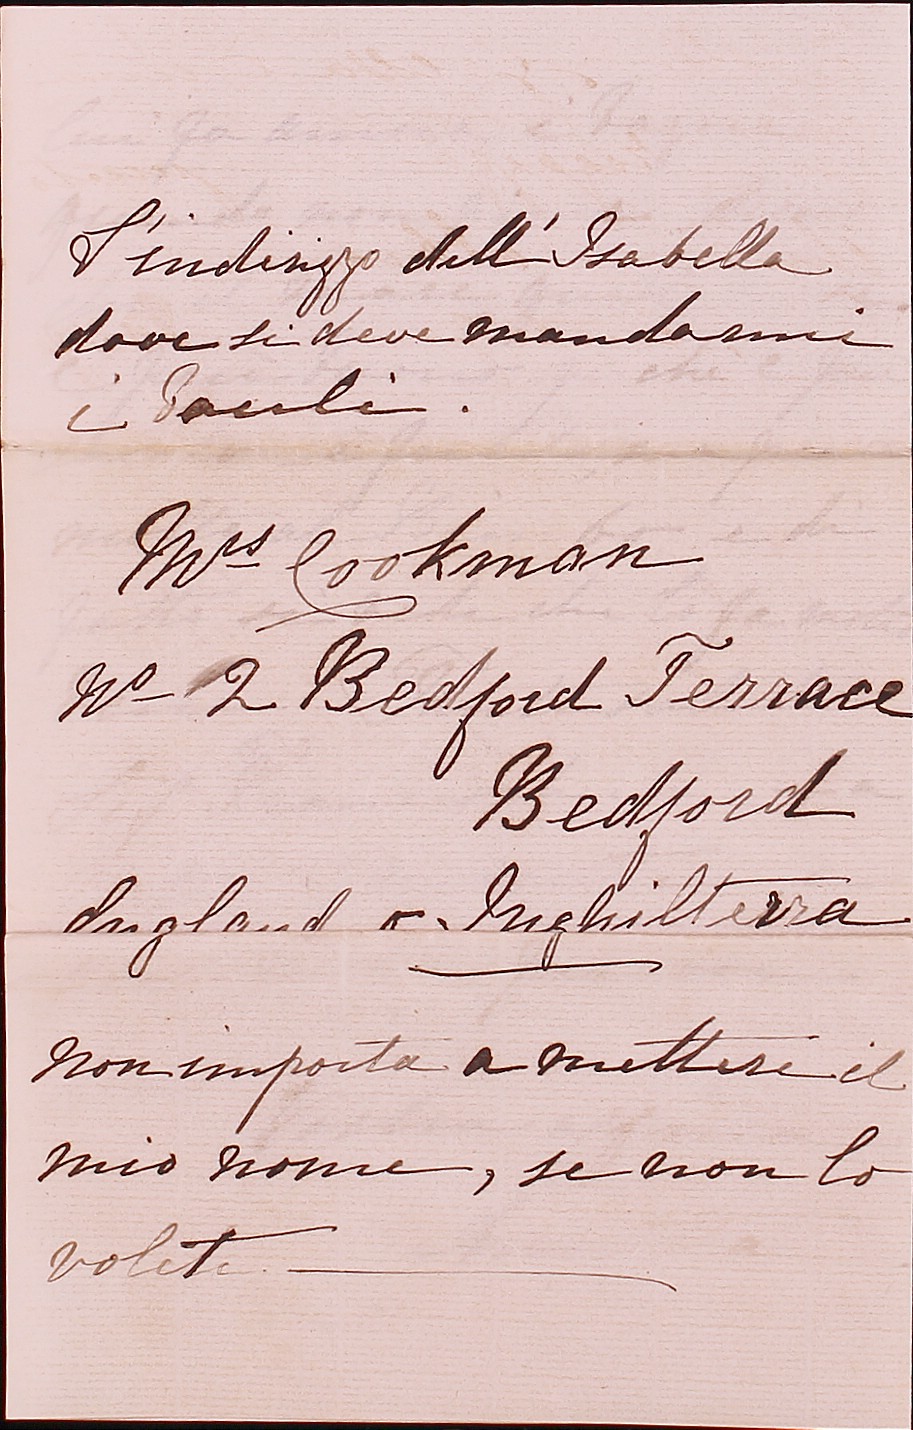 L'indirizzo dell'Isabella
dove si deve mandarmi
i Bauli.
Mrs Cookman
No 2 Bedford Terrace
Bedford
England o Inghilterra
non importa a mettere il
mio nome, se non lo
volete